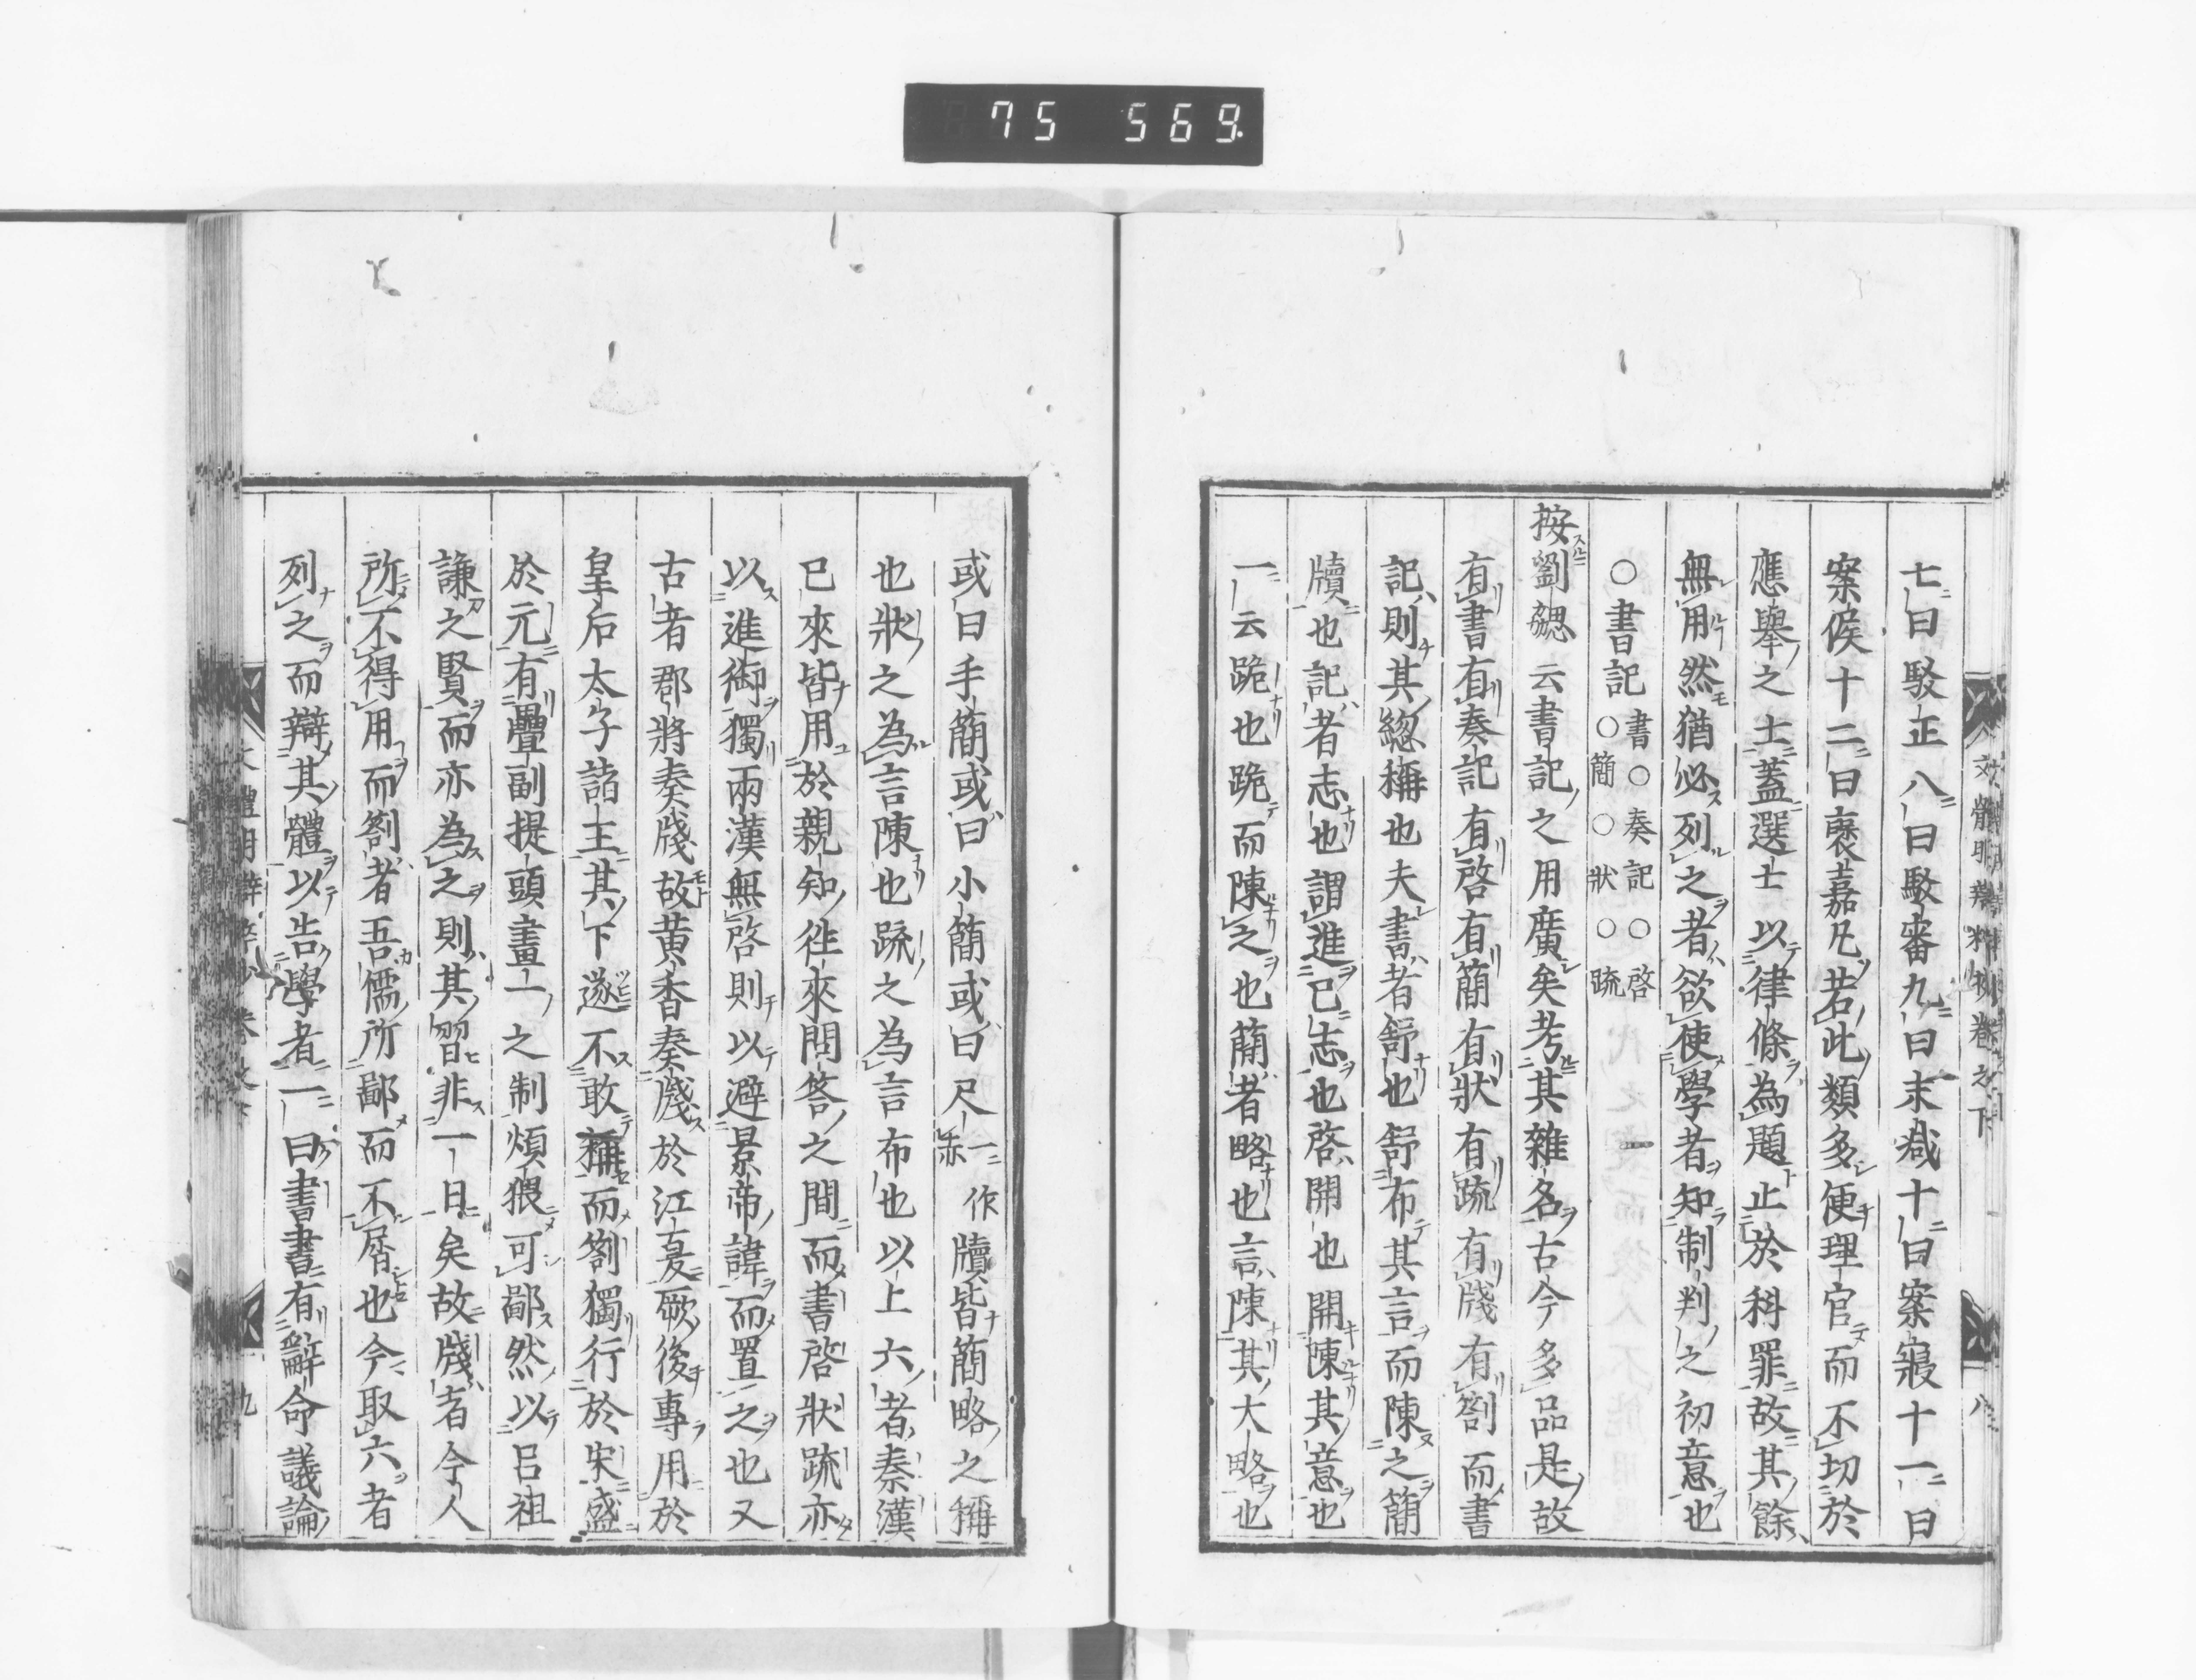 75 569.
七曰駁正八曰駁審九曰末減十曰案寢十一曰
案候十二曰褒嘉凡若此類多便理官而不切於
應舉之士蓋選士以律條為題止於科罪故其餘
無用然猶必列之者欲使學者知制判之初意也
○書記 書○奏記○啓○簡○狀○疏
按劉勰云書記之用廣矣考其雜名古今多品是故
有書有奏記有啓有簡有狀有疏有牋有劄而書
記則其總稱也夫書者舒也舒布其言而陳之簡
牘也記者志也謂進己志也啓開也開陳其意也
一云跪也跪而陳之也簡者略也言陳其大略也
文體明辯粹抄卷之下
八
或曰手簡或曰小簡或曰尺一作赤牘皆簡略之稱
也狀之為言陳也疏之為言布也以上六者秦漢
已來皆用於親知徃來問答之間而書啓狀疏亦
以進御獨兩漢無啓則以避景帝諱而置之也又
古者郡將奏牋故黃香奏牋於江夏厥後專用於
皇后太子諸王其下遂不敢稱而劄獨行於宋盛
於元有疊副提頭畫一之制煩猥可鄙然以呂祖
謙之賢而亦為之則其習非一日矣故牋者今人
所不得用而劄者吾儒所鄙而不屑也今取六者
列之而辯其體以告學者一曰書書有辭命議論
九